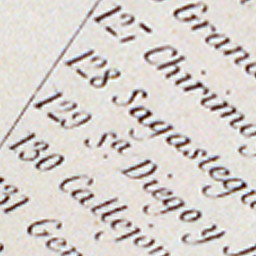 Gran
127 Chirimo
128 Sagastegu
129 Sa. Diego y J
130 Callejon
131 Gen